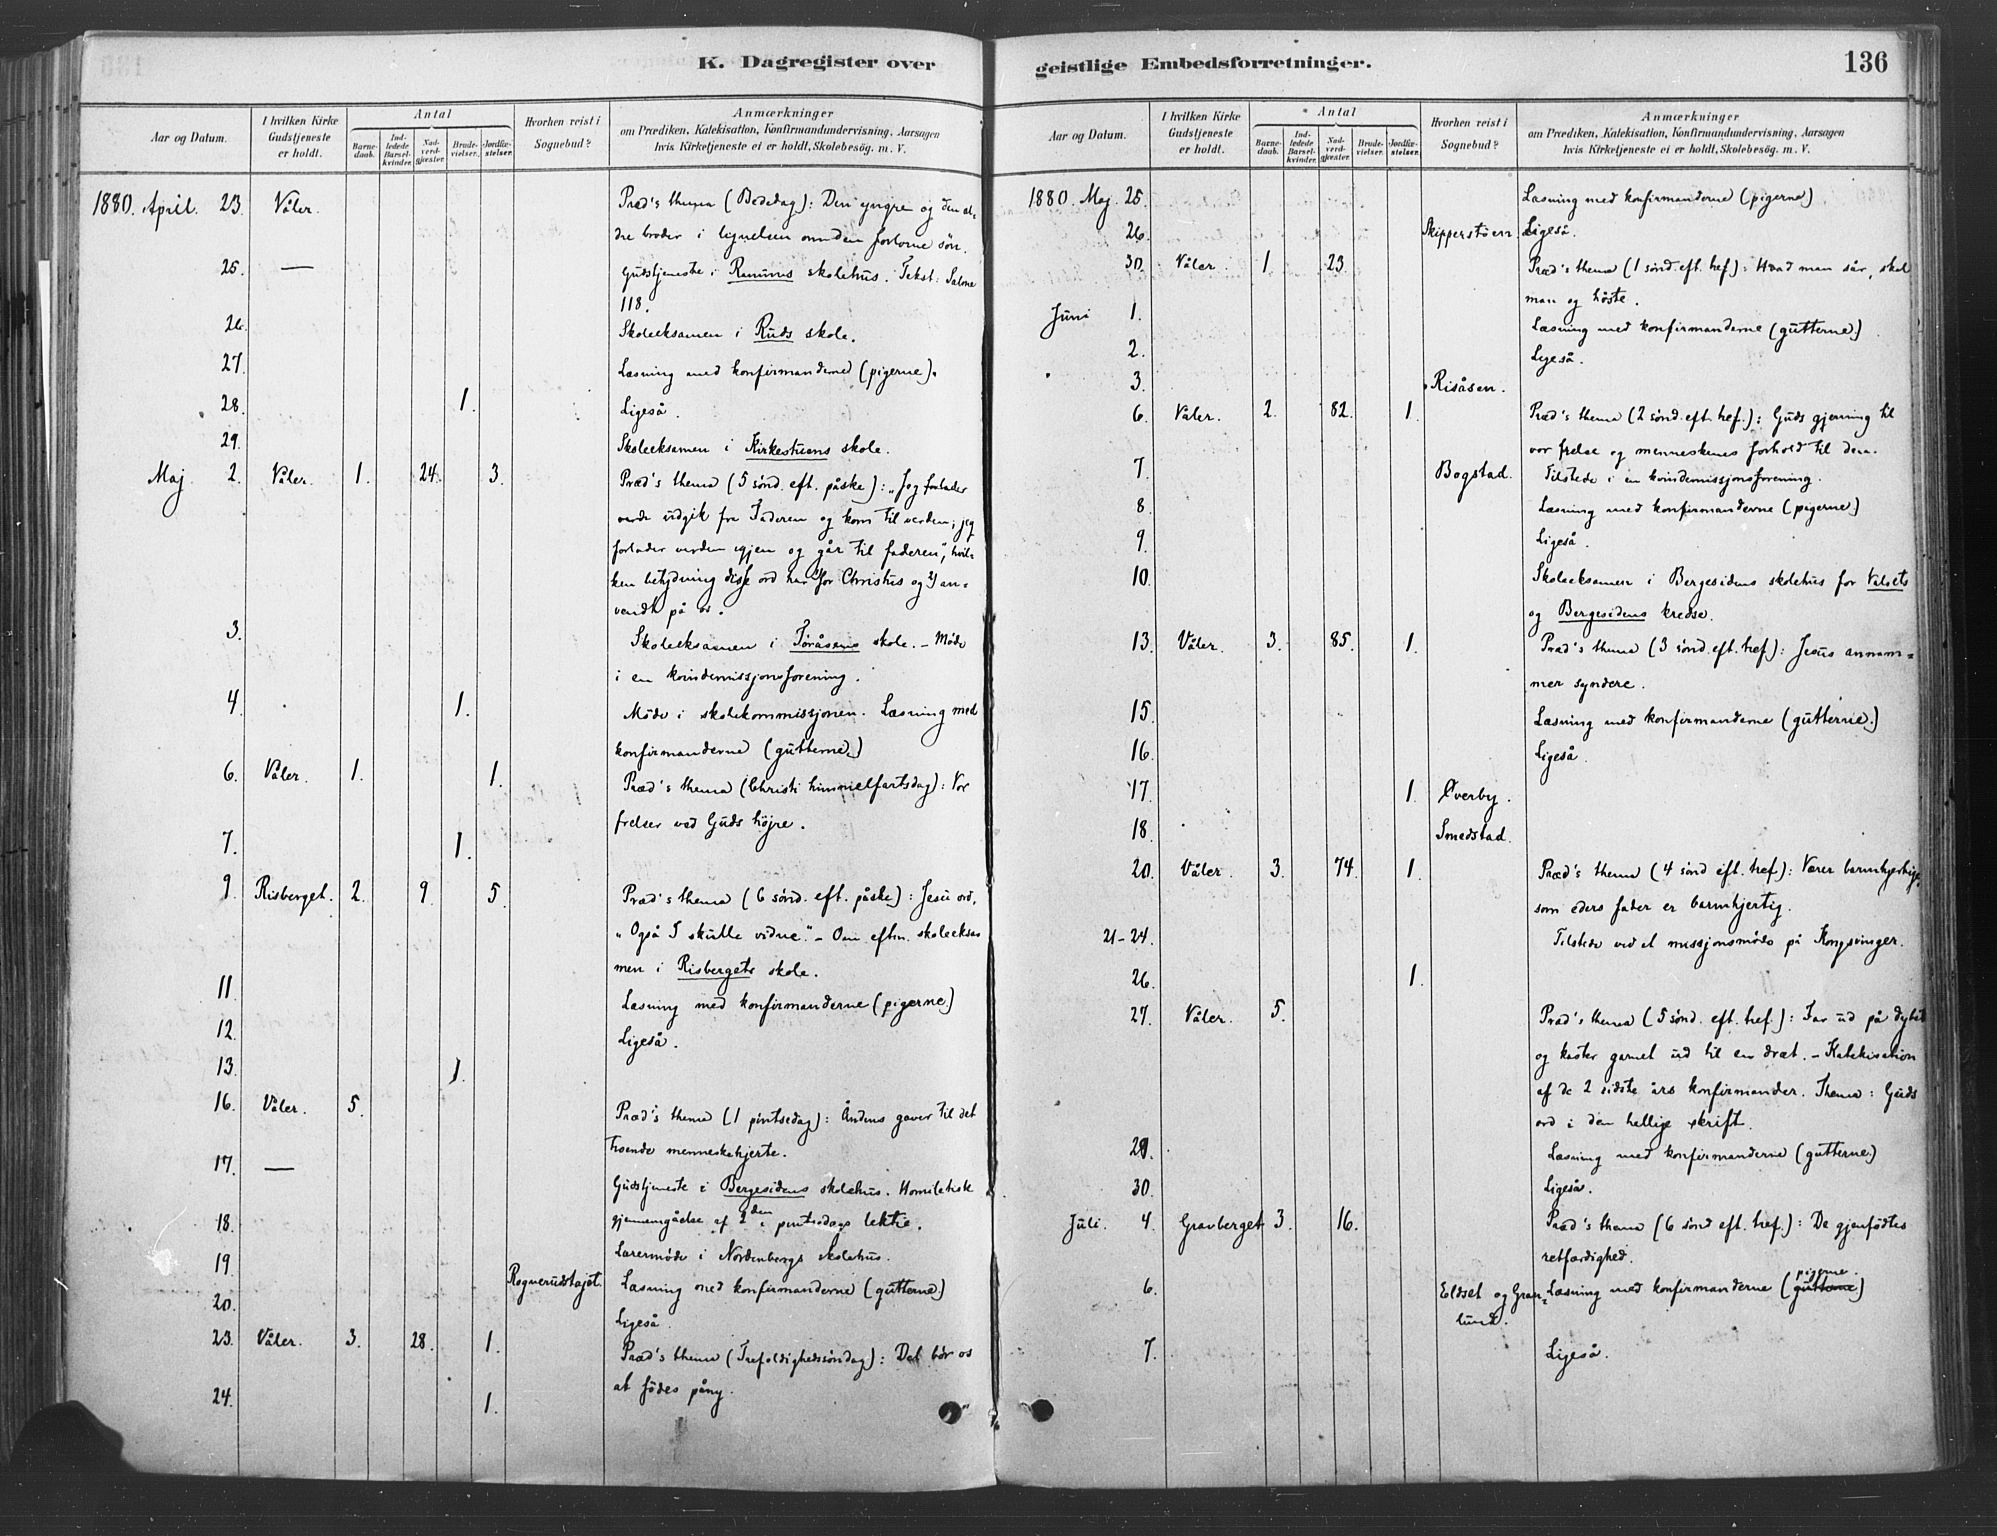 K. Dagregister over
Aar og Datum.
I hvilken Kirke Gudstjeneste er holdt.
Antal
Barnedaab.
Indledede Barselkvinder.
Nadverdgjæster.
Brudevielser.
Jordfæstelser.
Hvorhen reist i Sognebud?
Anmærkninger
om Prædiken, Katekisation, Konfirmandundervisning, Aarsagen
hvis Kirketjeneste ei er holdt, Skolebesøg. m. V.
1880. April. 23. Våler. Præd's thema (Bededag): Den yngre og den æl-
dre broder i lignelsen om den fortorne søn.
25. — Gudstjeneste i skolehus. Tekst: Salme
118.
26. Skoleeksamen i Ruds skole.
27. Læsning med konfirmanderne (pigerne).
28. 1. Ligeså.
29. Skoleeksamen i Kirkestuens skole.
Maj 2. Våler. 1. 24. 3. Præd's thema (5 sønd. eft. påske): „Jeg forlader
udgik fra Faderen og kom til verden; jeg
forlader verden igjen og går til faderen", hvil-
ken betydning disse ord har 1) for Christus og 2) an-
vendt på os.
3. Skoleeksamen i Toråsens skole. – Møde
i en kvindemissjonsforening.
4. 1. Møde i skolekommissjonen. Læsning med
konfirmanderne (gutterne.)
6. Våler. 1. 1. Præd's thema (Christi himmelfartsdag): Vor
frelser ved Guds højre.
7. 1.
9. Risberget. 2. 9. 5. Præd's thema (6 sønd. eft. påske): Jesu ord,
„Også I skulle vidne." – Om eftm. skoleeksa-
men i Risbergets skole.
11. Læsning med konfirmanderne (pigerne.)
12. Ligeså.
13. 1.
16. Våler. 5. Præd's thema (1 pintsedag): Åndens gaver til det
troende menneskehjerte.
17. — Gudstjeneste i Bergesidens skolehus. Homiletisk
gjennemgåelse af 2den pintsedags lektie.
18. Lærermøde i Nordenbergs skolehus.
19. Rognerudstajet. Læsning med konfirmanderne (gutterne.)
20. Ligeså.
23. Våler. 3. 28. 1. Præd's thema (Trefoldighedssøndag): Det bør os
at fødes påny.
24. 1.
geistlige Embedsforretninger. 136
Aar og Datum.
I hvilken Kirke Gudstjeneste er holdt.
Antal
Barnedaab.
Indledede Barselkvinder.
Nadverdgjæster.
Brudevielser.
Jordfæstelser.
Hvorhen reist i Sognebud?
Anmærkninger
om Prædiken, Katekisation, Konfirmandundervisning, Aarsagen
hvis Kirketjeneste ei er holdt, Skolebesøg. m. V.
1880. Maj. 25. Læsning med konfirmanderne (pigerne)
26. Skipperstøen. Ligeså.
30. Våler. 1. 23. Præd's thema (1 sønd. eft. tref): Hvad man sår, skal
man og høste.
Juni 1. Læsning med konfirmanderne (gutterne.)
2. Ligeså.
3. Risåsen.
6. Våler. 2. 82. 1. Præd's thema (2 sønd. eft. tref.): Guds gjerning til
vor frelse og menneskenes forhold til den.
7. Bogstad. Tilstede i en kvindemissjonsforening.
8. Læsning med konfirmanderne (pigerne)
9. Ligeså.
10. Skoleeksamen i Bergesidens skolehus for Valsets
og Bergesidens kredse.
13. Våler. 3. 85. 1. Præd's thema (3 sønd. eft. tref): Jesus annam-
mer syndere.
15. Læsning med konfirmanderne (gutterne.)
16. Ligeså.
17. 1. Øverby.
18. Smedstad.
20. Våler. 3. 74. 1. Præd's thema (4 sønd eft. tref): Værer barmhjertige,
som eders fader er barmhjertig.
21–24. Tilstede ved et missjonsmøde på Kongsvinger.
26. 1.
27. Våler. 5. Præd's thema (5 sønd. eft. tref.): Far ud på dybet
og kaster garnet ud til en dræt. – Katekisation
af de 2 sidste års konfirmander. Thema: Guds
ord i den hellige skrift.
29. Læsning med konfirmanderne (gutterne.)
30. Ligeså.
Juli. 4. Gravberget 3. 16. Præd's thema (6 sønd eft. tref.): De gjenfødtes
retfærdighed.
6. Eldset og Gran-
lund. Læsning med konfirmanderne (gutterne) pigerne.
7. Ligeså.